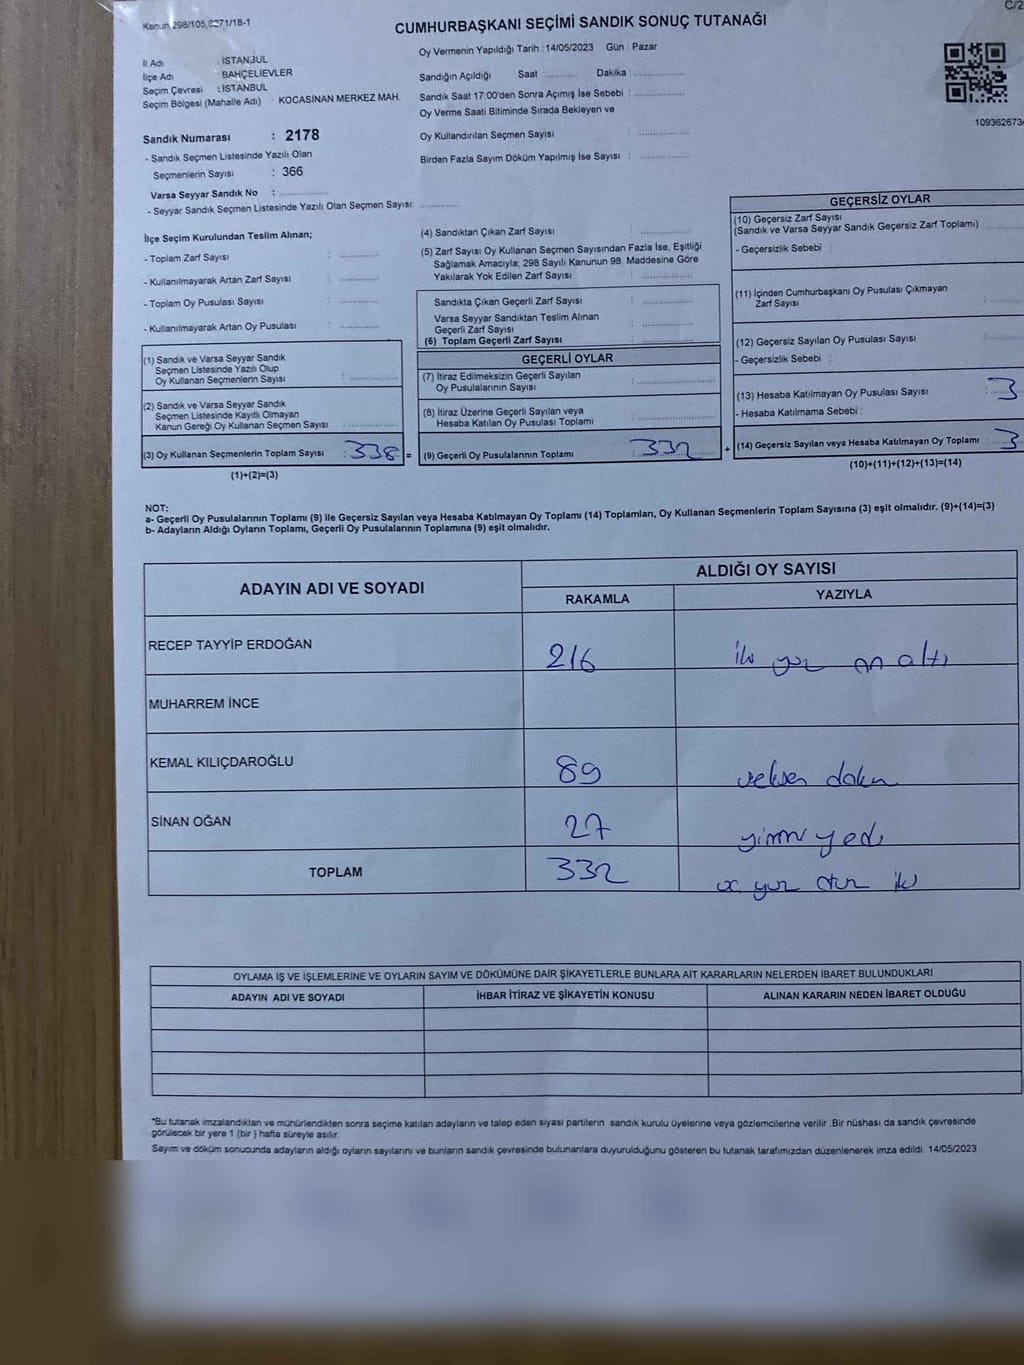 Kanun 298/105,
C/2
CUMHURBAŞKANI SEÇİMİ SANDIK SONUÇ TUTANAĞI
Oy Vermenin Yapıldığı Tarih : 14/05/2023 Gün : Pazar
İl Adı : İSTANBUL
İlçe Adı : BAHÇELİEVLER
Seçim Çevresi : İSTANBUL
Seçim Bölgesi (Mahalle Adı) : KOCASİNAN MERKEZ MAH.
Sandık Numarası : 2178
- Sandık Seçmen Listesinde Yazılı Olan
Seçmenlerin Sayısı : 366
Varsa Seyyar Sandık No : ............
- Seyyar Sandık Seçmen Listesinde Yazılı Olan Seçmen Sayısı: ............
Sandığın Açıldığı Saat : ............ Dakika : ............
Sandık Saat 17:00'den Sonra Açımış İse Sebebi : ............
Oy Verme Saati Bitiminde Sırada Bekleyen ve
Oy Kullandırılan Seçmen Sayısı : ............
Birden Fazla Sayım Döküm Yapılmış İse Sayısı : ............
109362673
İlçe Seçim Kurulundan Teslim Alınan;
- Toplam Zarf Sayısı : ............
- Kullanılmayarak Artan Zarf Sayısı : ............
- Toplam Oy Pusulası Sayısı : ............
- Kullanılmayarak Artan Oy Pusulası : ............
(1) Sandık ve Varsa Seyyar Sandık
Seçmen Listesinde Yazılı Olup
Oy Kullanan Seçmenlerin Sayısı : ............
(2) Sandık ve Varsa Seyyar Sandık
Seçmen Listesinde Kayıtlı Olmayan
Kanun Gereği Oy Kullanan Seçmen Sayısı : ............
(3) Oy Kullanan Seçmenlerin Toplam Sayısı : 338 =
(1)+(2)=(3)
(4) Sandıktan Çıkan Zarf Sayısı : ............
(5) Zarf Sayısı Oy Kullanan Seçmen Sayısından Fazla İse, Eşitliği
Sağlamak Amacıyla; 298 Sayılı Kanunun 98. Maddesine Göre
Yakılarak Yok Edilen Zarf Sayısı : ............
Sandıkta Çıkan Geçerli Zarf Sayısı : ............
Varsa Seyyar Sandıktan Teslim Alınan
Geçerli Zarf Sayısı : ............
(6) Toplam Geçerli Zarf Sayısı : ............
GEÇERLİ OYLAR
(7) İtiraz Edilmeksizin Geçerli Sayılan
Oy Pusulalarının Sayısı : ............
(8) İtiraz Üzerine Geçerli Sayılan veya
Hesaba Katılan Oy Pusulası Toplamı : ............
(9) Geçerli Oy Pusulalarının Toplamı : 332 +
GEÇERSİZ OYLAR
(10) Geçersiz Zarf Sayısı
(Sandık ve Varsa Seyyar Sandık Geçersiz Zarf Toplamı) ............
- Geçersizlik Sebebi :
(11) İçinden Cumhurbaşkanı Oy Pusulası Çıkmayan
Zarf Sayısı : ............
(12) Geçersiz Sayılan Oy Pusulası Sayısı : ............
- Geçersizlik Sebebi :
(13) Hesaba Katılmayan Oy Pusulası Sayısı : 3
- Hesaba Katılmama Sebebi :
(14) Geçersiz Sayılan veya Hesaba Katılmayan Oy Toplamı : 3
(10)+(11)+(12)+(13)=(14)
NOT:
a- Geçerli Oy Pusulalarının Toplamı (9) ile Geçersiz Sayılan veya Hesaba Katılmayan Oy Toplamı (14) Toplamları, Oy Kullanan Seçmenlerin Toplam Sayısına (3) eşit olmalıdır. (9)+(14)=(3)
b- Adayların Aldığı Oyların Toplamı, Geçerli Oy Pusulalarının Toplamına (9) eşit olmalıdır.
ADAYIN ADI VE SOYADI ALDIĞI OY SAYISI
RAKAMLA YAZIYLA
RECEP TAYYİP ERDOĞAN 216 iki yüz on altı
MUHARREM İNCE
KEMAL KILIÇDAROĞLU 89 seksen dokuz
SİNAN OĞAN 27 yirmi yedi
TOPLAM 332 üç yüz otuz iki
OYLAMA İŞ VE İŞLEMLERİNE VE OYLARIN SAYIM VE DÖKÜMÜNE DAİR ŞİKAYETLERLE BUNLARA AİT KARARLARIN NELERDEN İBARET BULUNDUKLARI
ADAYIN ADI VE SOYADI İHBAR İTİRAZ VE ŞİKAYETİN KONUSU ALINAN KARARIN NEDEN İBARET OLDUĞU
*Bu tutanak imzalandıktan ve mühürlendikten sonra seçime katılan adayların ve talep eden siyasi partilerin sandık kurulu üyelerine veya gözlemcilerine verilir .Bir nüshası da sandık çevresinde
görülecek bir yere 1 (bir ) hafta süreyle asılır.
Sayım ve döküm sonucunda adayların aldığı oyların sayılarını ve bunların sandık çevresinde bulunanlara duyurulduğunu gösteren bu tutanak tarafımızdan düzenlenerek imza edildi. 14/05/2023